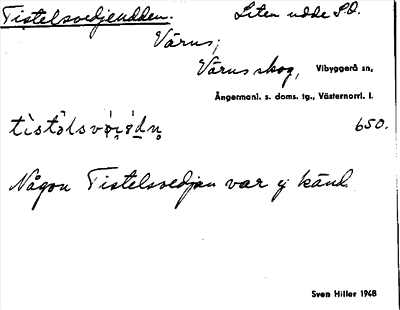 Tistelsvedjeudden. Liten udde SO.
Värns;
Värns skog, Vibyggerå sn,
Ångermanl. s. doms. tg., Västernorrl. l.
650.
Någon Tistelsvedjan var ej känd.
Sven Hiller 1948